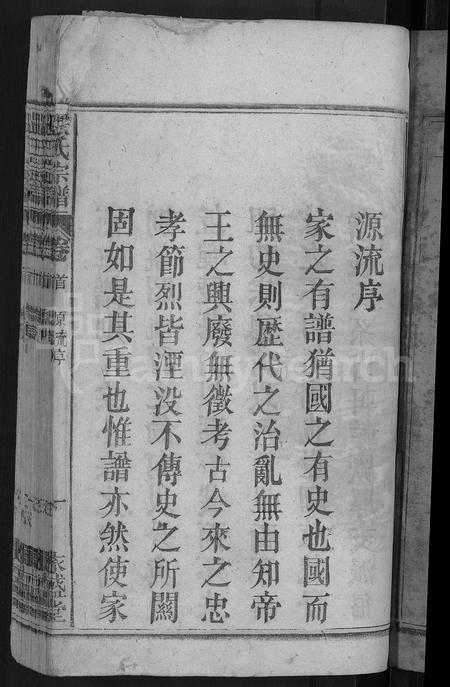 源流序
家之有譜猶國之有史也國而
無史則歷代之治亂無由知帝
王之興廢無徵考古今來之忠
孝節烈皆湮没不傳史之所關
固如是其重也惟譜亦然使家
氏宗譜
卷首 源流序
FamilySearch